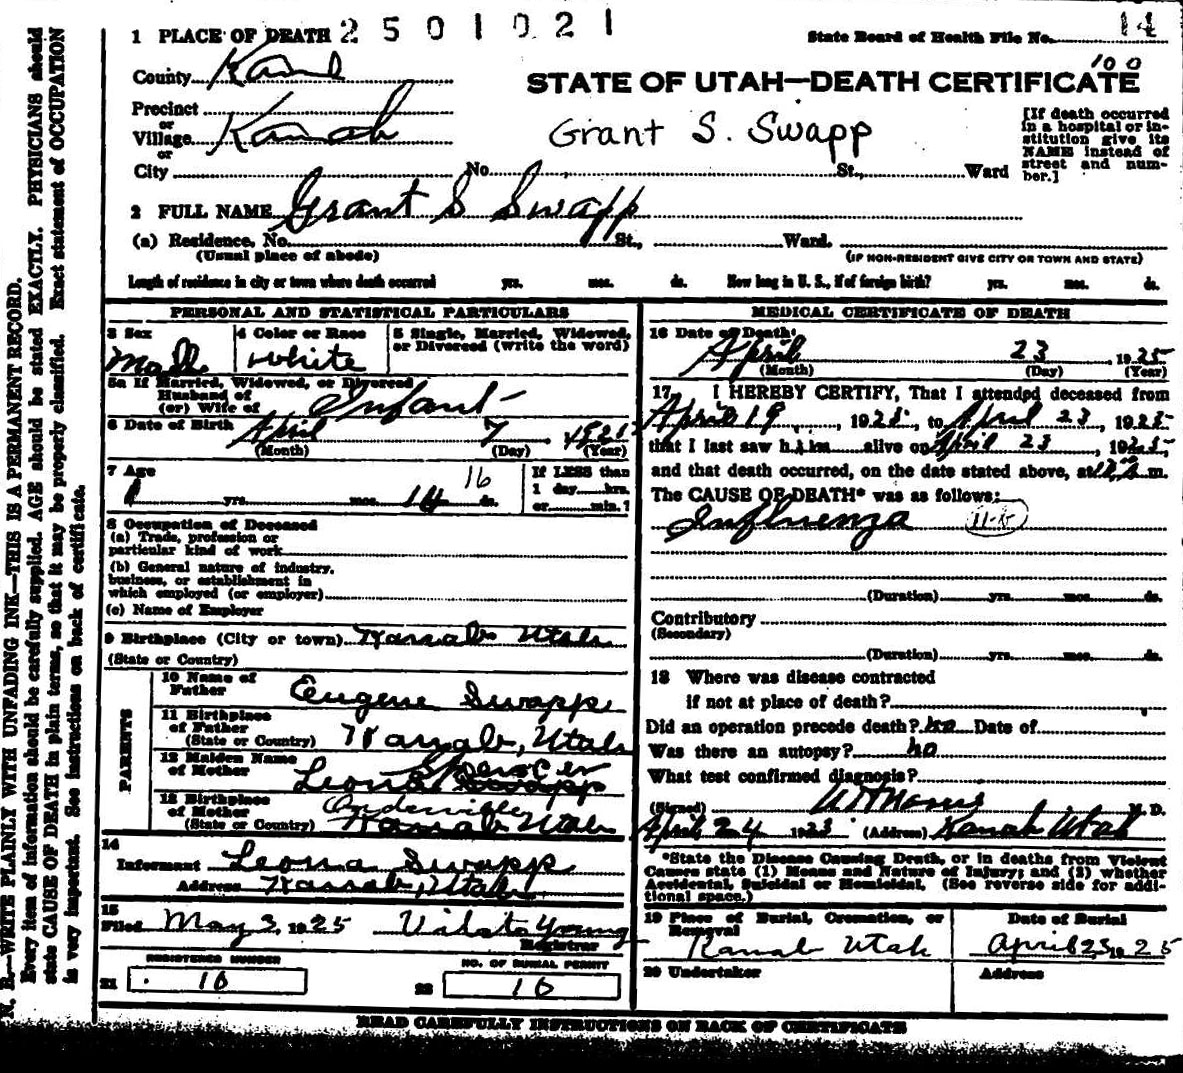 2501021
1 PLACE OF DEATH
State Board of Health File No. 14
100
County Kane
STATE OF UTAH—DEATH CERTIFICATE
Precinct
or
Village Kanab
or
City No. St., Ward
Grant S. Swapp
[If death occurred
in a hospital or in-
stitution give its
NAME instead of
street and num-
ber.]
2 FULL NAME Grant S Swapp
(a) Residence, No. St., Ward.
(Usual place of abode)
(IF NON-RESIDENT GIVE CITY OR TOWN AND STATE)
Length of residence in city or town where death occurred yrs. mos. ds. How long in U. S., if of foreign birth? yrs. mos. ds.
PERSONAL AND STATISTICAL PARTICULARS
3 Sex
Male
4 Color or Race
White
5 Single, Married, Widowed,
or Divorced (write the word)
5a If Married, Widowed, or Divorced
Husband of
(or) Wife of Infant
6 Date of Birth April 7
(Month) (Day) (Year)
7 Age
yrs. mos. 16 ds.
If LESS than
1 day hrs.
or min.?
8 Occupation of Deceased
(a) Trade, profession or
particular kind of work
(b) General nature of industry,
business, or establishment in
which employed (or employer)
(c) Name of Employer
9 Birthplace (City or town) Kanab Utah
(State or Country)
PARENTS
10 Name of
Father Eugene Swapp
11 Birthplace
of Father
(State or Country) Kanab, Utah
12 Maiden Name
of Mother Leona Spencer Swapp
13 Birthplace
of Mother
(State or Country) Orderville Kanab Utah
14
Informant Leona Swapp
Address Kanab, Utah
15
Filed May 3, 1925
Registrar
REGISTERED NUMBER
21 10
NO. OF BURIAL PERMIT
22 10
MEDICAL CERTIFICATE OF DEATH
16 Date of Death:
April 23, 1925
(Month) (Day) (Year)
17 I HEREBY CERTIFY, That I attended deceased from
April 19, 1925, to April 23, 1925
that I last saw him alive on April 23, 1925
and that death occurred, on the date stated above, at m.
The CAUSE OF DEATH* was as follows:
Influenza
(Duration) yrs. mos. ds.
Contributory
(Secondary)
(Duration) yrs. mos. ds.
18 Where was disease contracted
if not at place of death?
Did an operation precede death? no Date of
Was there an autopsy? no
What test confirmed diagnosis?
(Signed) M. D.
April 24 1925 (Address) Kanab Utah
*State the Disease Causing Death, or in deaths from Violent
Causes state (1) Means and Nature of Injury; and (2) whether
Accidental, Suicidal or Homicidal. (See reverse side for addi-
tional space.)
19 Place of Burial, Cremation, or
Removal
Kanab Utah
Date of Burial
April 23, 1925
20 Undertaker
Address
READ CAREFULLY INSTRUCTIONS ON BACK OF CERTIFICATE
N. B.—WRITE PLAINLY WITH UNFADING INK—THIS IS A PERMANENT RECORD.
Every item of information should be carefully supplied. AGE should be stated EXACTLY. PHYSICIANS should
state CAUSE OF DEATH in plain terms, so that it may be properly classified. Exact statement of OCCUPATION
is very important. See instructions on back of certificate.